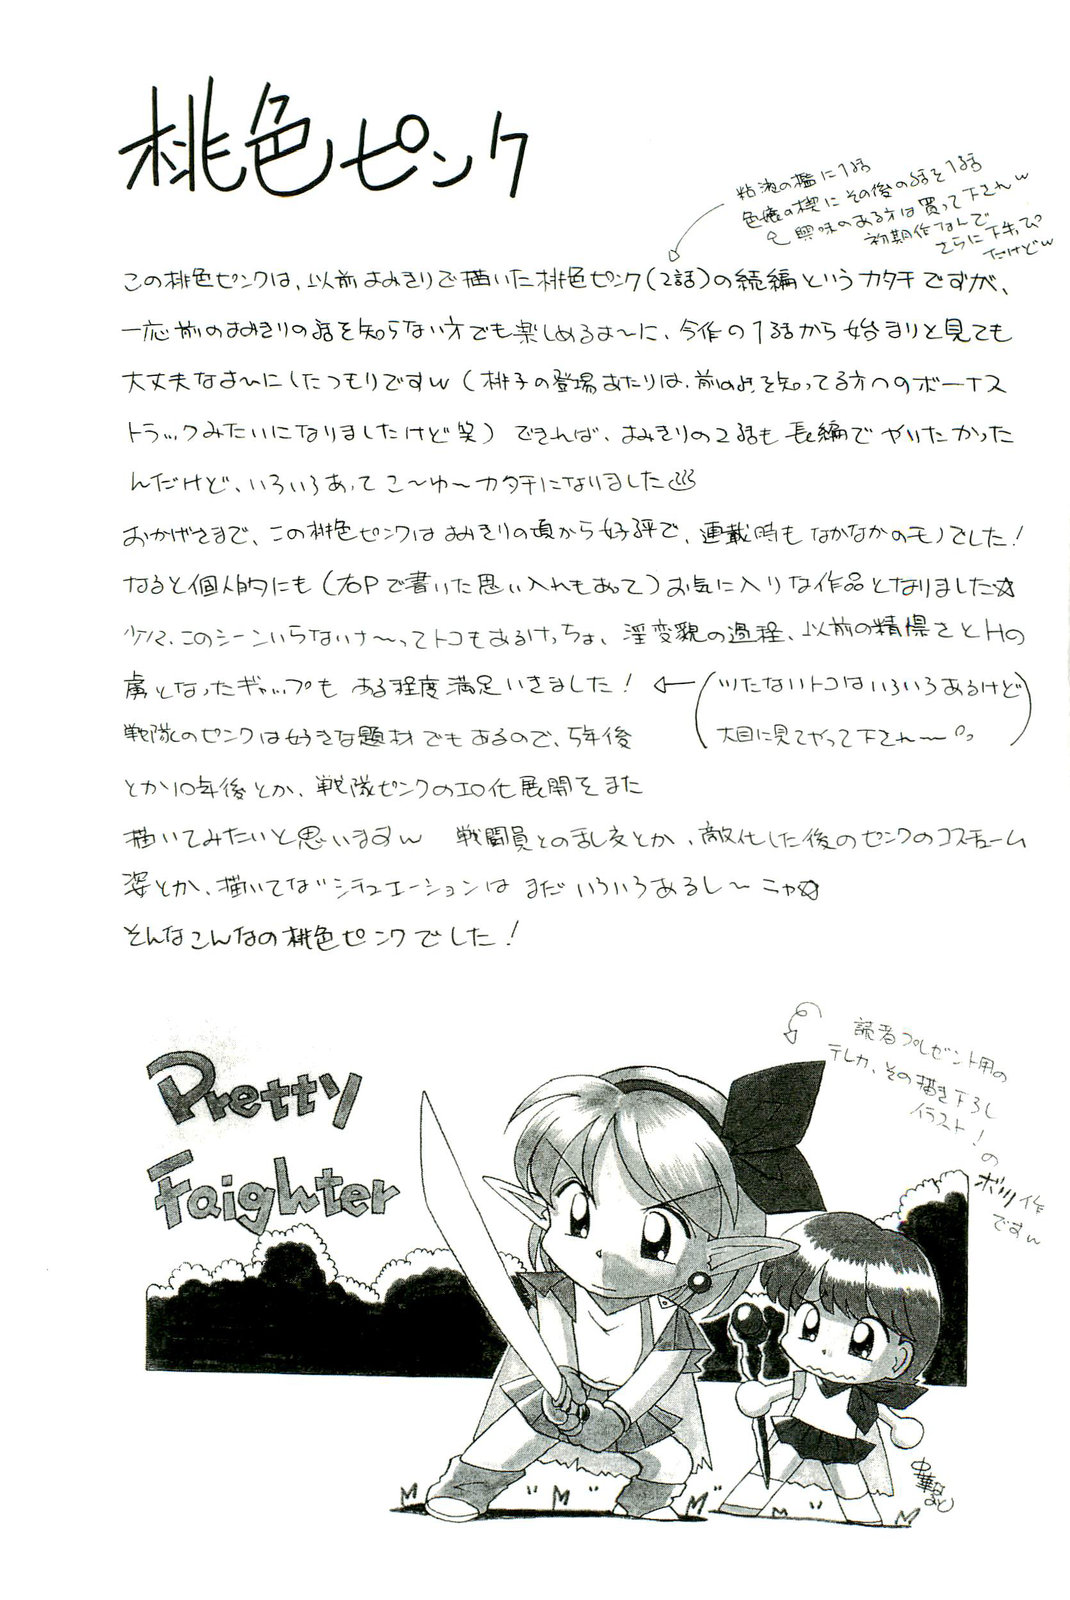 桃色ピンク
粘液の檻に1話
色魔の楔にその後の話を1話
興味のある方は買って下されw
初期作なんで
さらに下手っぴ
だけどw
この桃色ピンクは、以前よみきりで描いた桃色ピンク(2話)の続編というカタチですが、
一応前のよみきりの話を知らない方でも楽しめるよ〜に、今作の1話から始まりと見ても
大丈夫なよ〜にしたつもりですw(桃子の登場あたりは、前のを知ってる方へのボーナス
トラックみたいになりましたけど笑) できれば、よみきりの2話も長編でやりたかった
んだけど、いろいろあってこ〜ゆ〜カタチになりました
おかげさまで、この桃色ピンクはよみきりの頃から好評で、連載時もなかなかのモノでした!
なると個人的にも(右Pで書いた思い入れもあって)お気に入りな作品となりました☆
少々、このシーンいらないナ〜ってトコもあるけっちょ、淫変貌の過程、以前の精悍さとHの
虜となったギャップも ある程度満足いきました! ←(ツたないトコはいろいろあるけど
大目に見てやって下され〜)
戦隊のピンクは好きな題材でもあるので、5年後
とか10年後とか、戦隊ピンクのエロ化展開をまた
描いてみたいと思いますw 戦闘員との乱交とか、敵化した後のピンクのコスチューム
姿とか、描いてな〜シチュエーションは まだいろいろあるし〜ニャ☆
そんなこんなの桃色ピンクでした!
読者プレゼント用の
テレカ、その描き下ろし
イラスト!
の
ボツ作
ですw
Pretty
Faighter
中華なると